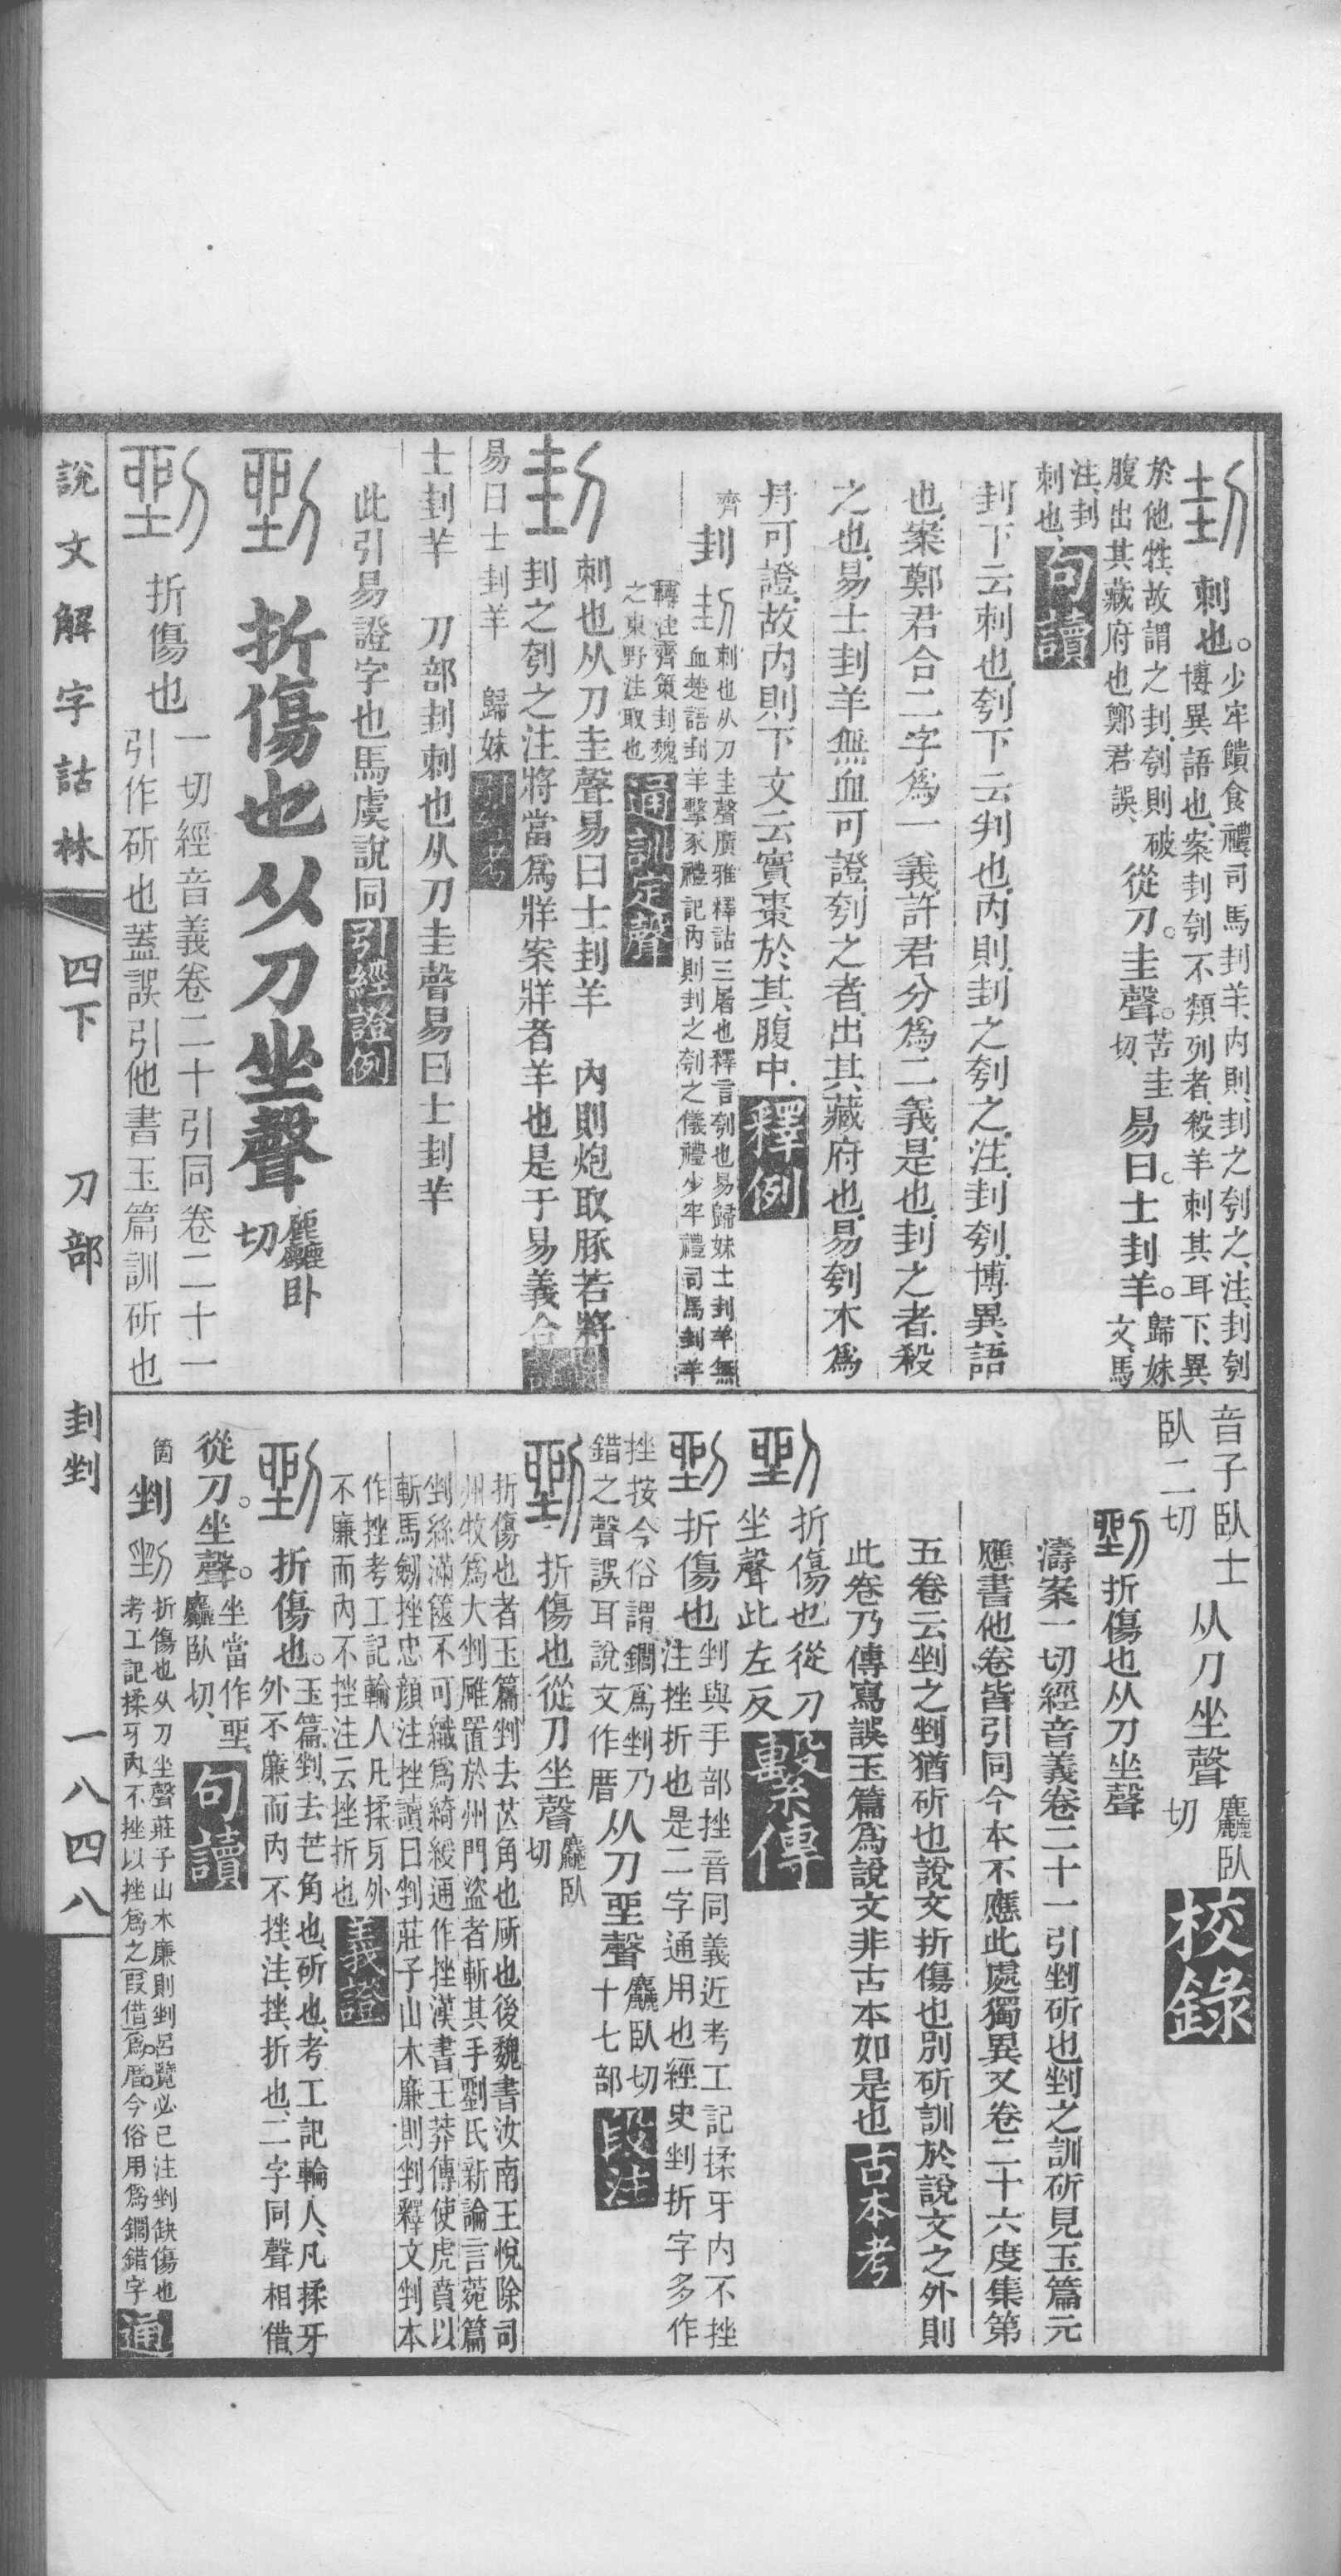 刲 刺也。少牢饋食禮司馬刲羊、内則、刲之刳之、注、刲刳
博異語也、案刲刳不類列者、殺羊刺其耳下、異
於他牲、故謂之刲、刳則破
腹出其藏府也鄭君誤、
從刀。圭聲。苦圭切、易曰。士刲羊。歸妹文、馬
注、刲
刺也、句讀
刲下云刺也、刳下云判也、内則、刲之刳之、注、刲刳、博異語
也、案鄭君合二字爲一義、許君分爲二義、是也、刲之者、殺
之也、易士刲羊無血可證、刳之者、出其藏府也、易刳木爲
舟可證、故内則下文云實棗於其腹中、釋例
齊 刲 刲 刺也从刀圭聲廣雅釋詁三屠也釋言刳也易歸妹士刲羊無
血楚語刲羊擊豕禮記内則刲之刳之儀禮少牢禮司馬刲羊
轉注齊策刲魏
之東野注取也 通訓定聲
刲 刺也从刀圭聲易曰士刲羊 内則炮取豚若將
刲之刳之注將當爲牂案牂者羊也是于易義合
易曰士刲羊 歸妹
士刲羊 刀部刲刺也从刀圭聲易曰士刲羊
此引易證字也馬虞說同 引經證例
剉 折傷也从刀坐聲 麤臥切
剉 折傷也 一切經音義卷二十引同卷二十一
引作斫也蓋誤引他書玉篇訓斫也
音子臥士
臥二切
从刀坐聲 麤臥切 校錄
剉 折傷也从刀坐聲
濤案一切經音義卷二十一引剉斫也剉之訓斫見玉篇元
應書他卷皆引同今本不應此處獨異又卷二十六度集第
五卷云剉之剉猶斫也說文折傷也別斫訓於說文之外則
此卷乃傳寫誤玉篇爲說文非古本如是也 古本考
剉 折傷也從刀
坐聲此左反 繫傳
剉 折傷也 剉與手部挫音同義近考工記揉牙内不挫
注挫折也是二字通用也經史剉折字多作
挫按今俗謂鐗爲剉乃
錯之聲誤耳說文作厝
从刀𡋲聲 麤臥切十七部 段注
剉 折傷也從刀坐聲 麤臥切
折傷也者玉篇剉去芒角也斫也後魏書汝南王悅除司
州牧爲大剉碓置於州門盜者斬其手劉氏新論言菀篇
剉絲滿篋不可織爲綺綬通作挫漢書王莽傳使虎賁以
斬馬劒挫忠顏注挫讀曰剉莊子山木廉則剉釋文剉本
作挫考工記輪人凡揉牙外
不廉而内不挫注云挫折也 義證
剉 折傷也。玉篇、剉、去芒角也、斫也、考工記輪人、凡揉牙
外不廉而内不挫、注、挫、折也、二字同聲相借、
從刀。坐聲。坐當作𡋲、麤臥切、 句讀
箇 剉 剉 折傷也从刀坐聲莊子山木廉則剉呂覽必己注剉缺傷也
考工記揉牙内不挫以挫爲之叚借爲厝今俗用爲鐗錯字 通
說文解字詁林 四下 刀部 刲剉 一八四八